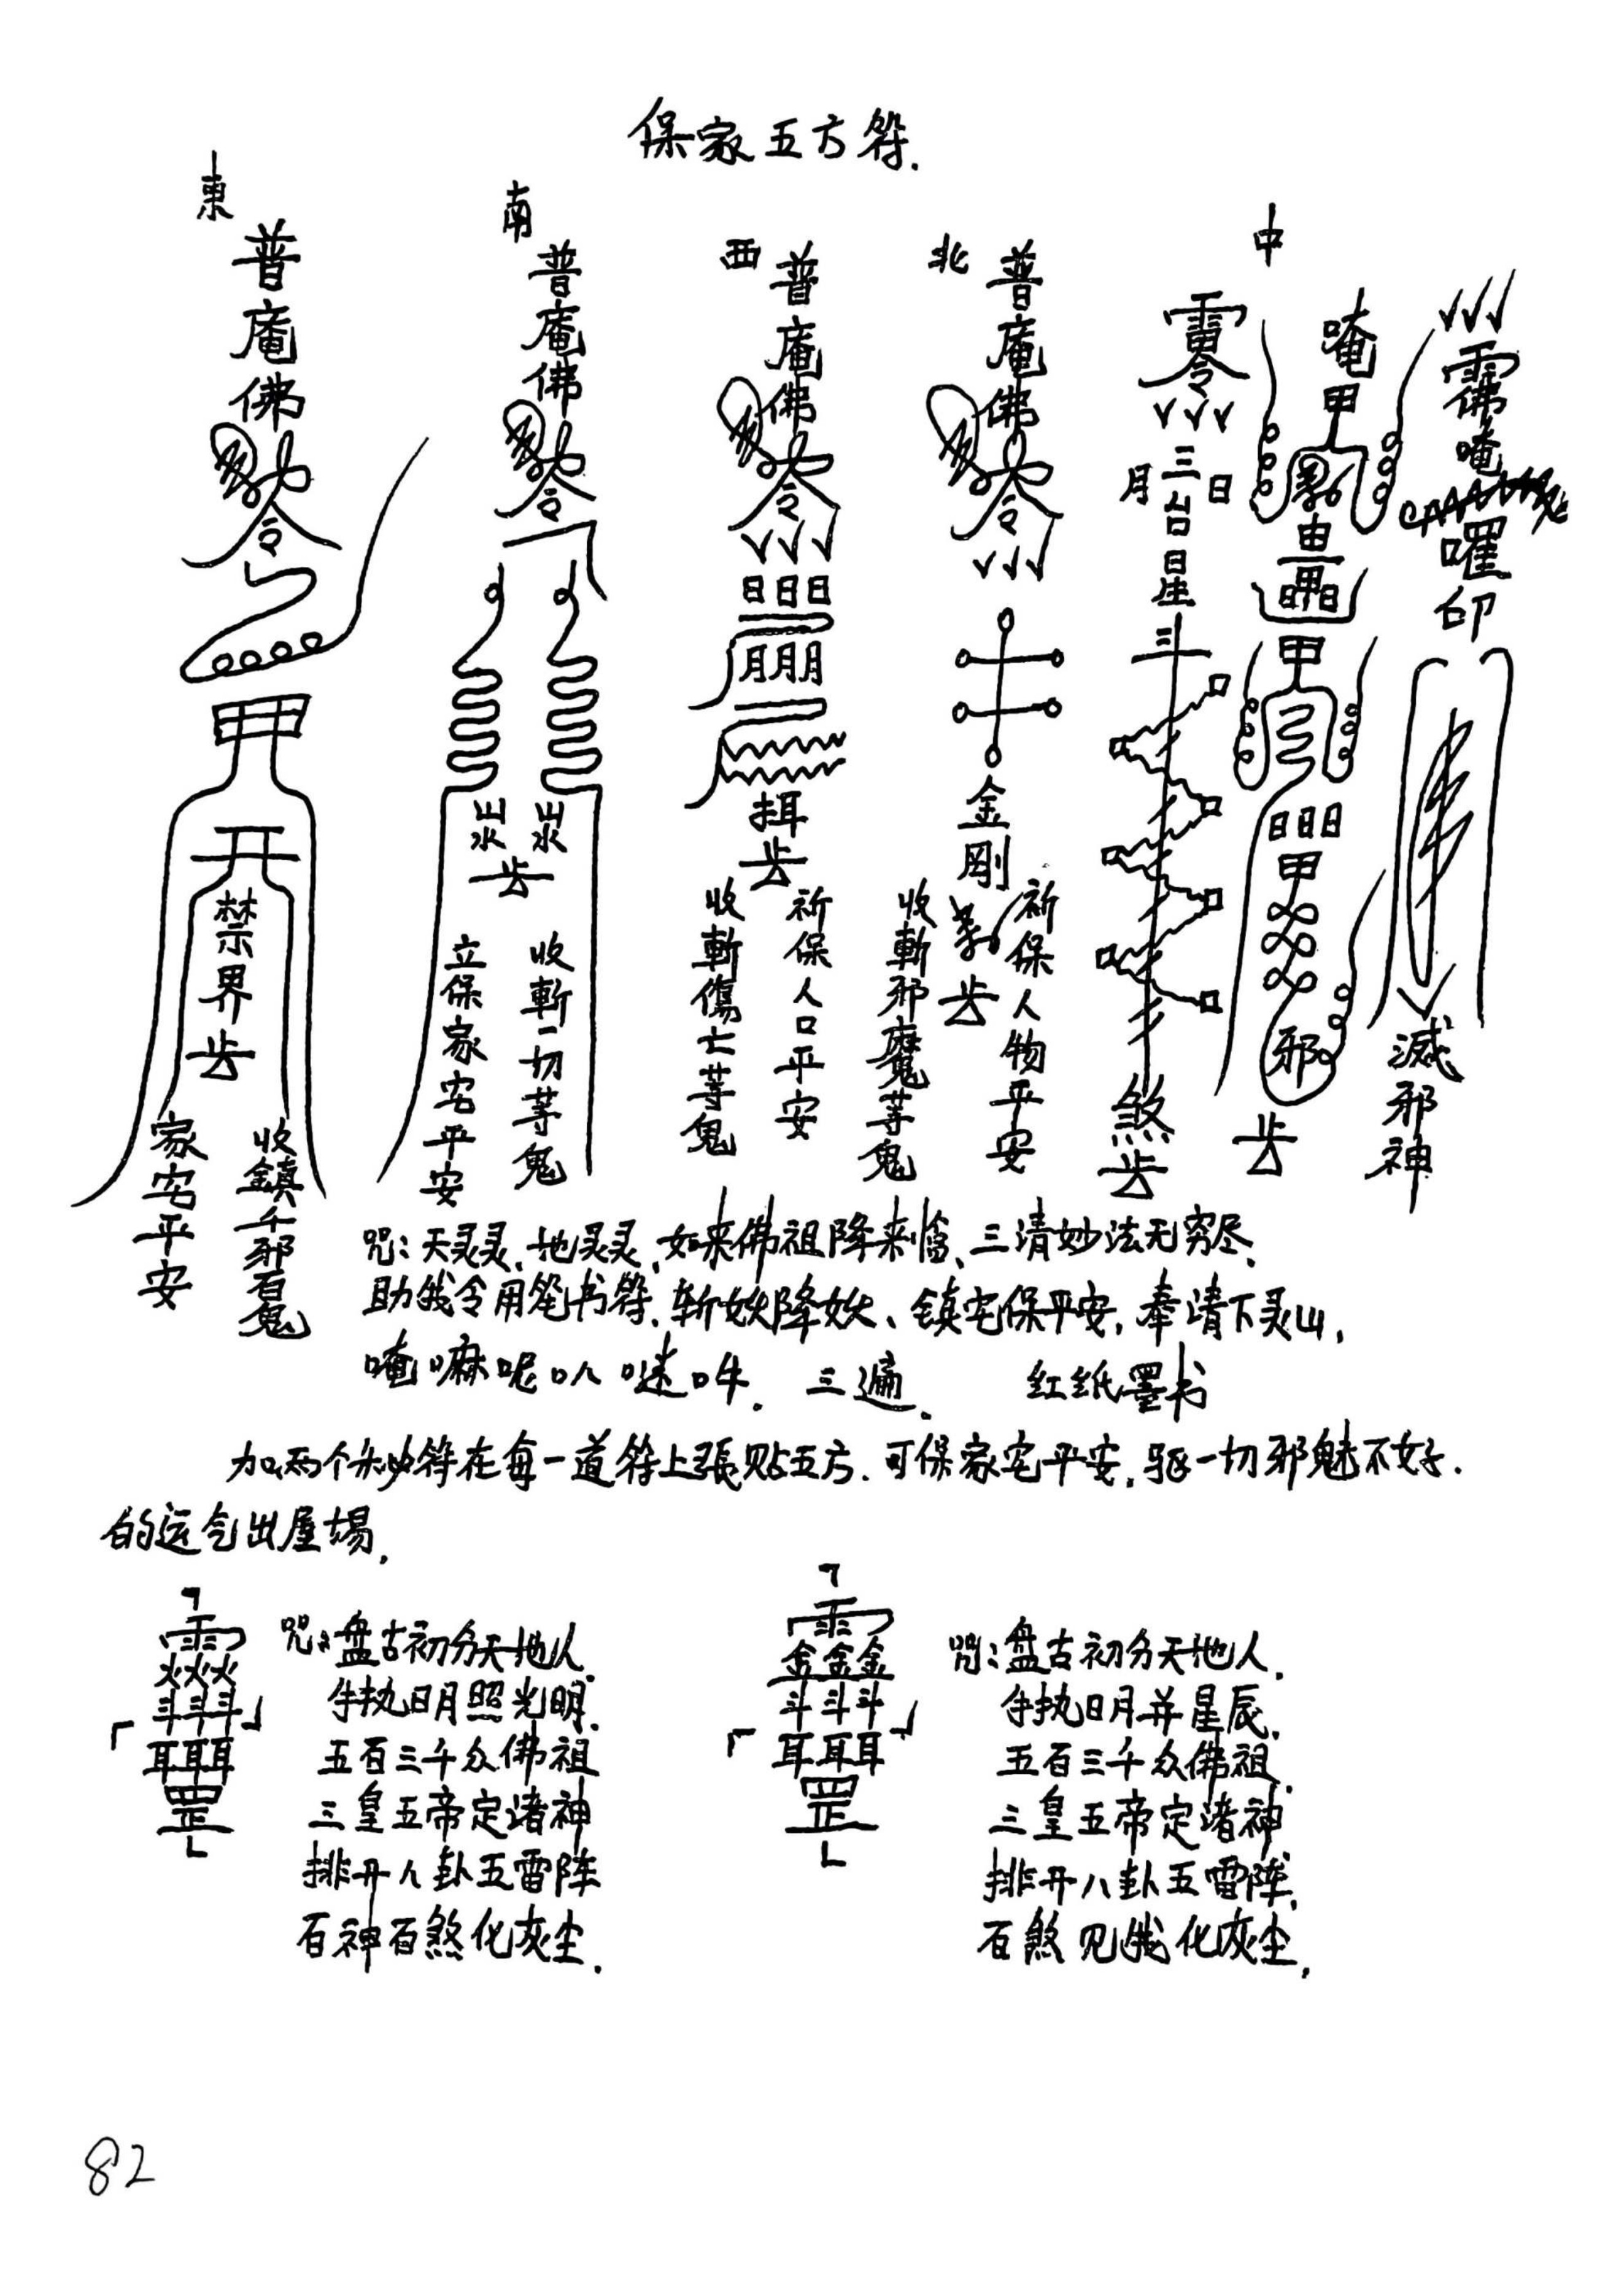 保家五方符.
東
普庵佛
令
禁界
家宅平安
收鎮千邪百鬼
南
普庵佛
令
立保家宅平安
收斬一切等鬼
西
普庵佛
令
日日日
月月月
收斬傷亡等鬼
祈保人口平安
北
普庵佛
令
金剛
收斬邪魔等鬼
祈保人物平安
中
月 三台 日
星
斗
煞
唵
甲
甲
日日日
甲
邪
唵
囉
印
滅邪神
咒:天灵灵、地灵灵、如来佛祖降来临、三清妙法无穷尽、
助我令用笔书符、斩妖降妖、镇宅保平安,奉请下灵山,
唵嘛呢叭哒吽. 三遍. 红纸墨书
加两个秘符在每一道符上張贴五方.可保家宅平安,驱一切邪魅不好.
的运气出屋場.
咒:盘古初分天地人.
手执日月照光明.
五百三千众佛祖
三皇五帝定诸神
排开八卦五雷阵
百神百煞化灰尘.
咒:盘古初分天地人.
手执日月并星辰.
五百三千众佛祖.
三皇五帝定诸神
排开八卦五雷阵.
百煞见我化灰尘.
82